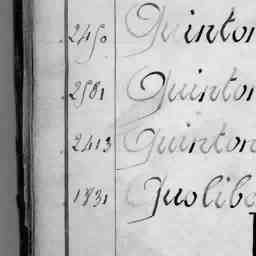 2450 Quinton
2501 Quinton
2413 Quinton
1831 Quolibe